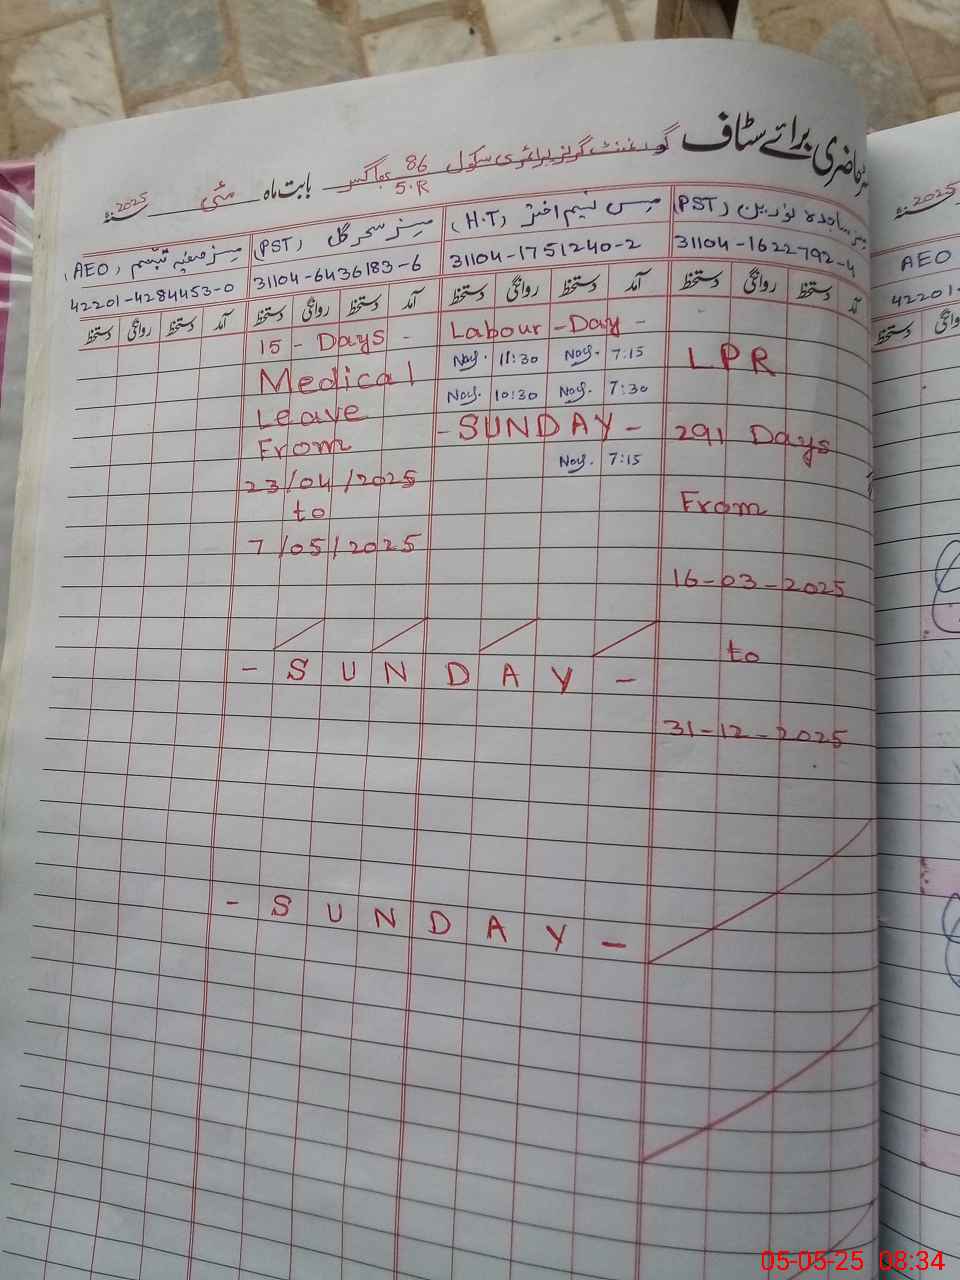 حاضری برائے سٹاف گورنمنٹ گرلز پرائمری سکول 86 بابت ماہ مئی 2025
5.R
مسز ساجدہ نورین (PST) مس نسیم اختر (H.T) مسز سحر گل (PST) مسز صفیہ تبسم (AEO)
31104-1622792-4 31104-1751240-2 31104-6436183-6 42201-4284453-0
آمد دستخط روانگی دستخط آمد دستخط روانگی دستخط آمد دستخط روانگی دستخط آمد دستخط روانگی دستخط
15 - Days -
Medical
Leave
From
23/04/2025
to
7/05/2025
Labour - Day -
11:30 7:15
10:30 7:30
- SUNDAY -
7:15
LPR
291 Days
From
16-03-2025
to
31-12-2025
- SUNDAY -
- SUNDAY -
2025
AEO
42201-
05-05-25 08:34